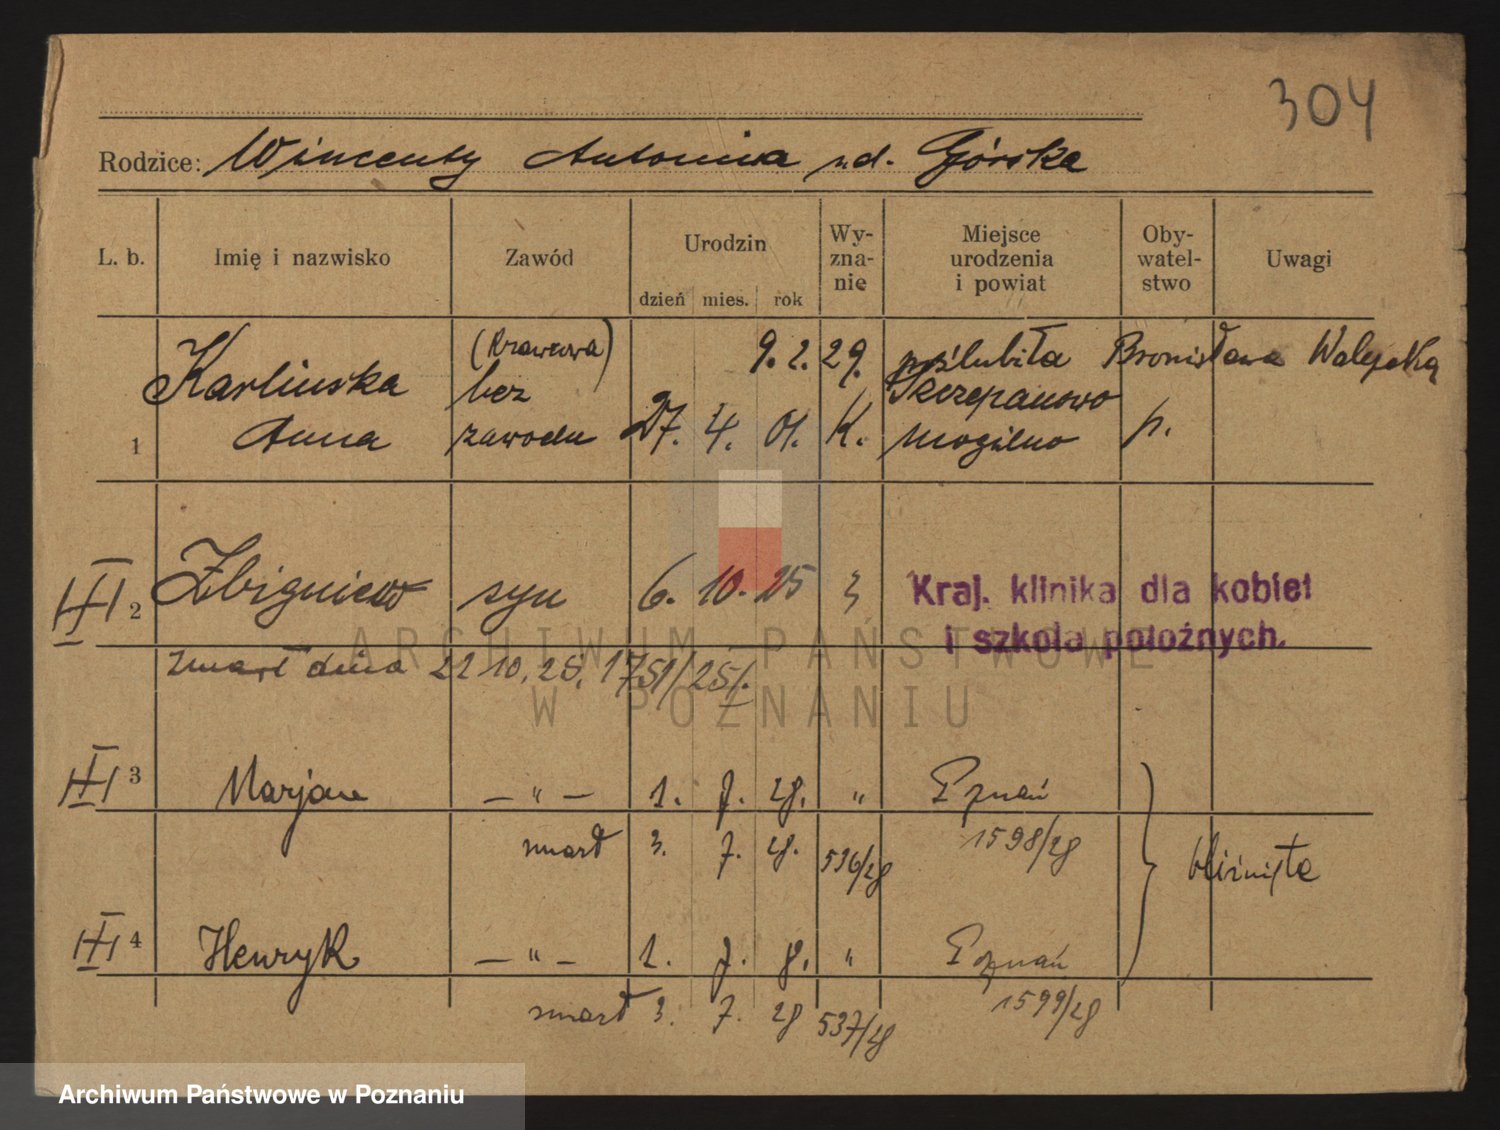 304
Rodzice: Wincenty Antonina rd. Górska
L. b. Imię i nazwisko Zawód Urodzin dzień mies. rok Wy-zna-nie Miejsce urodzenia i powiat Oby-watel-stwo Uwagi
(Krawcowa) 9. 2. 29. poślubiła Bronisława
Karlinska bez Szczepanowo
1 Anna zawodu 27. 4. 01. K. Mogilno p.
2 Zbigniew syn 6. 10. 25 Kraj. klinika dla kobiet
i szkoła położnych.
zmarł dnia 22 10. 25. 1751/25/.
3 Marjan — " — 1. 7. 28. " Poznań
zmarł 3. 7. 28. 536/28 1598/28 bliźnięta
4 Henryk — " — 1. 7. 8. " Poznań
zmarł 3. 7. 28 537/28 1599/28
ARCHIWUM PAŃSTWOWE
W POZNANIU
Archiwum Państwowe w Poznaniu